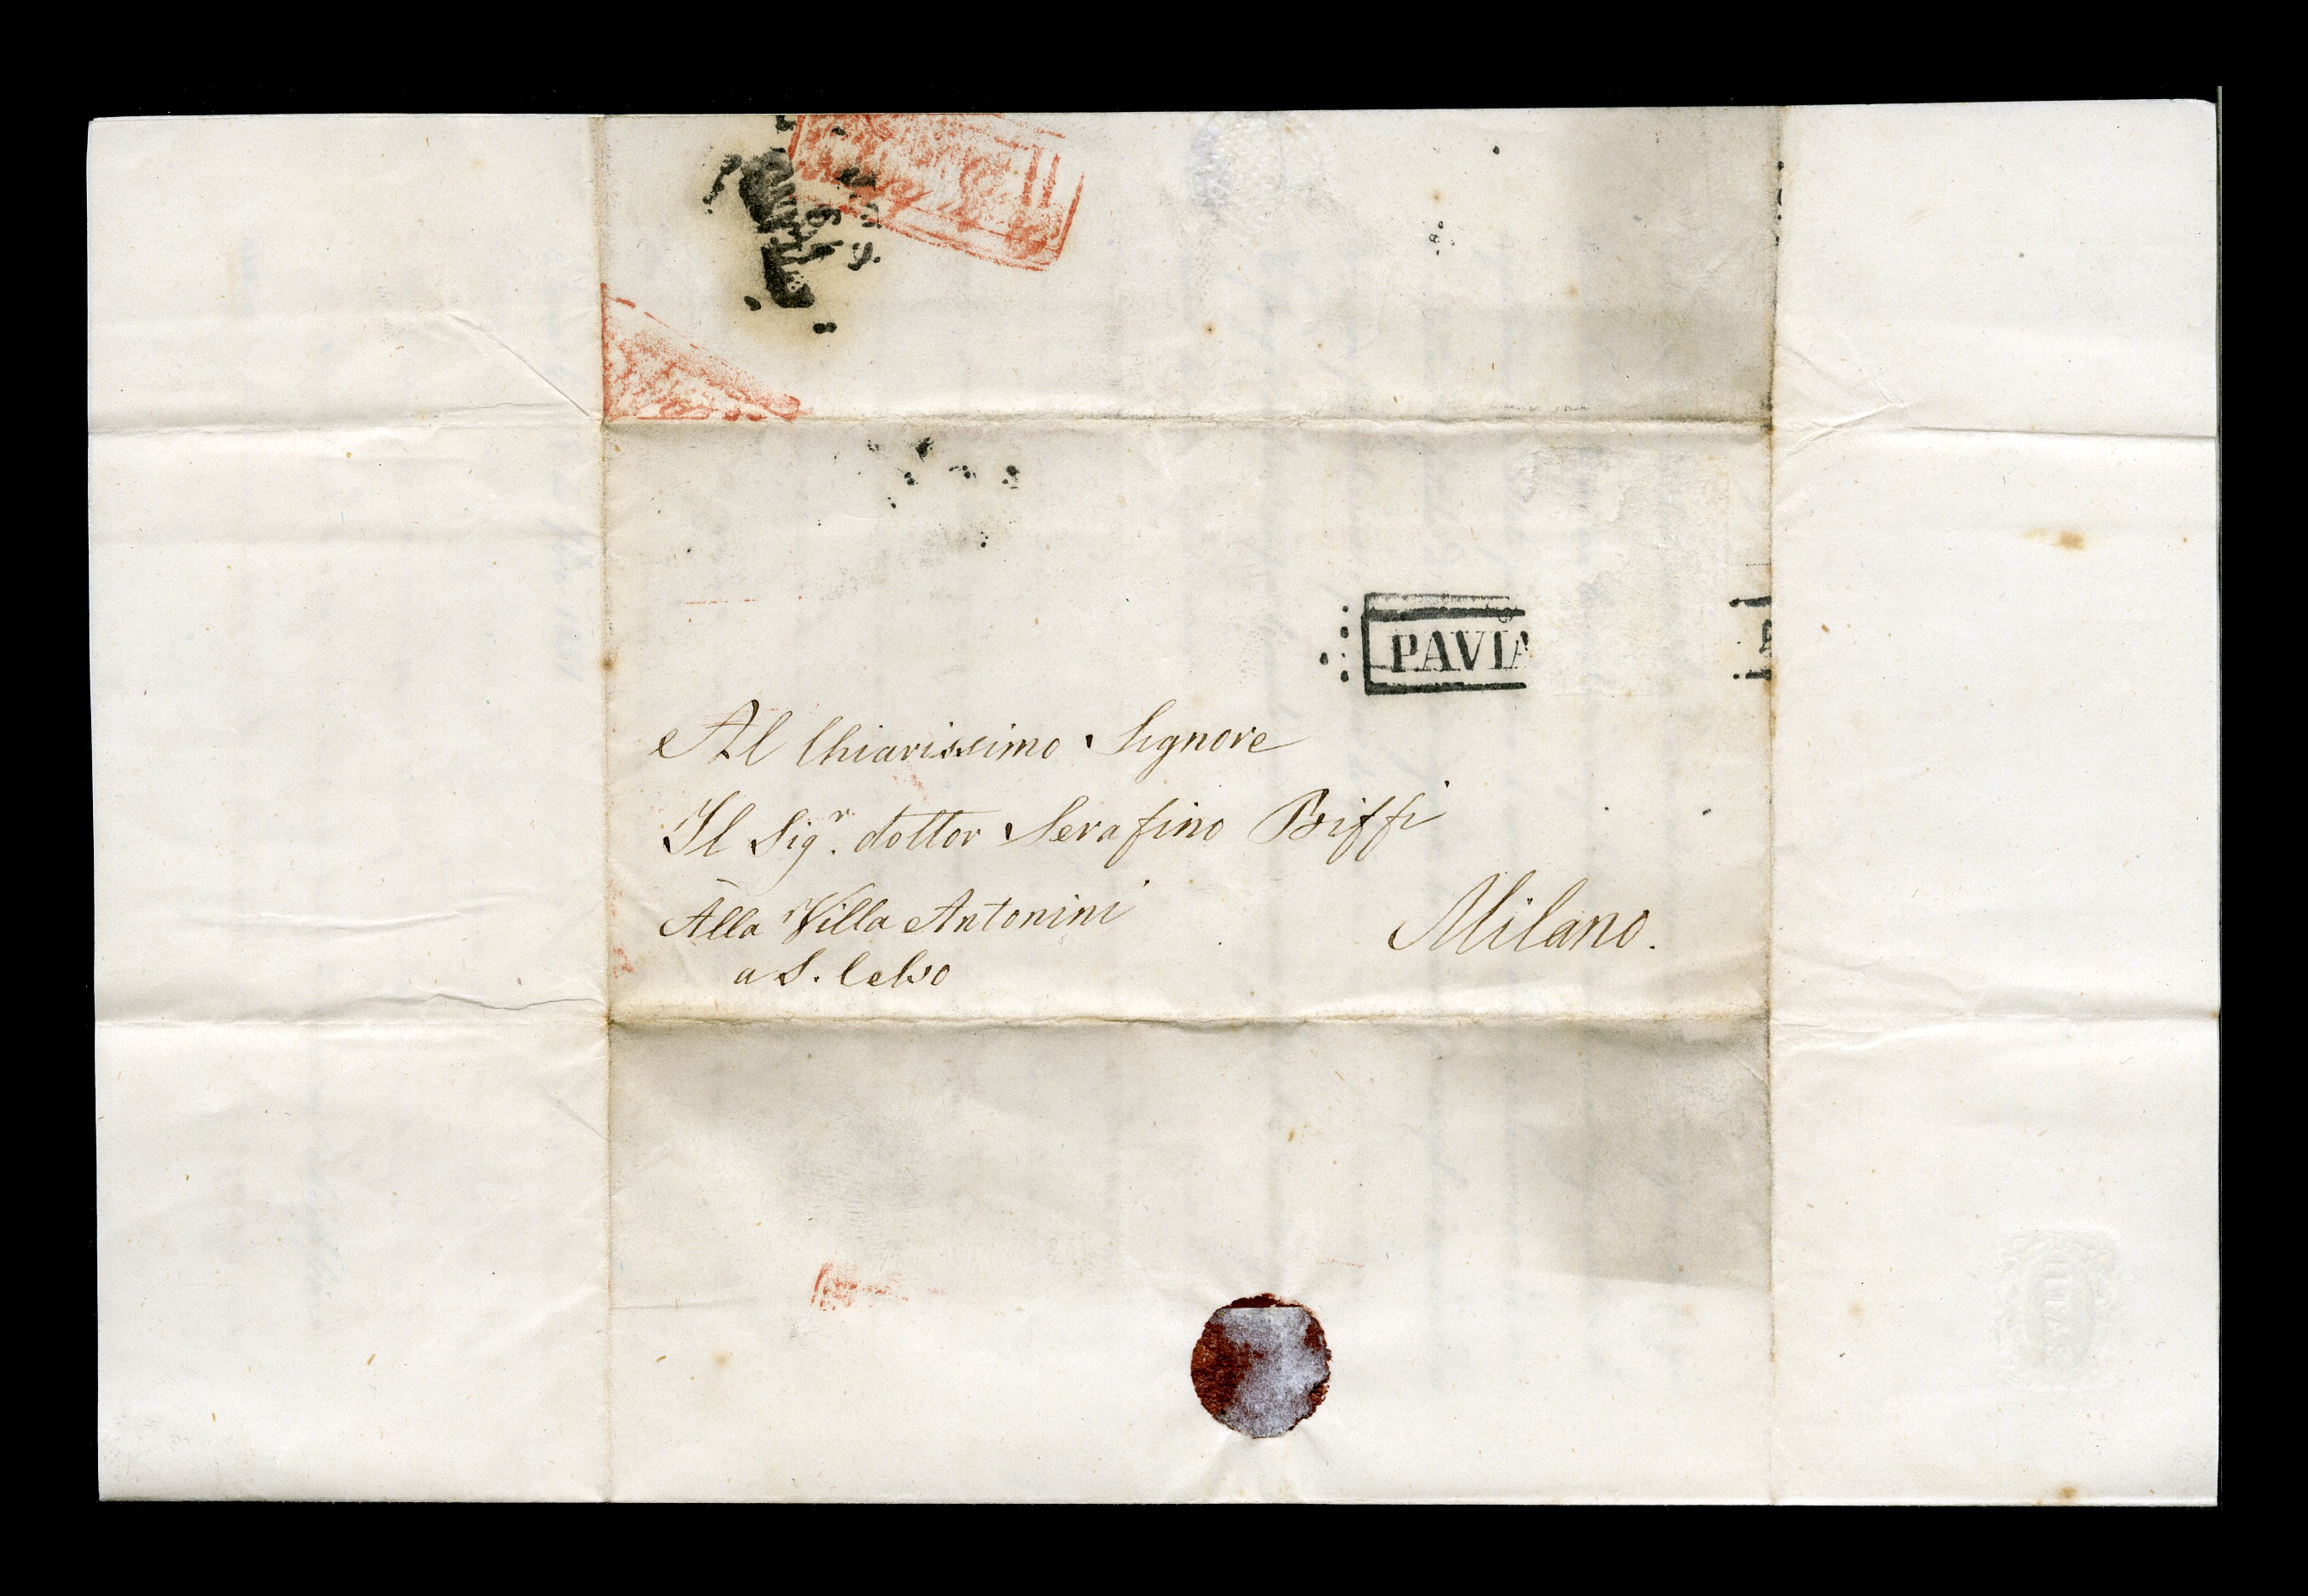 PAVIA
Al Chiarissimo Signore
Il Sigr. dottor Serafino Biffi
Alla Villa Antonini
Milano.
a S. Celso